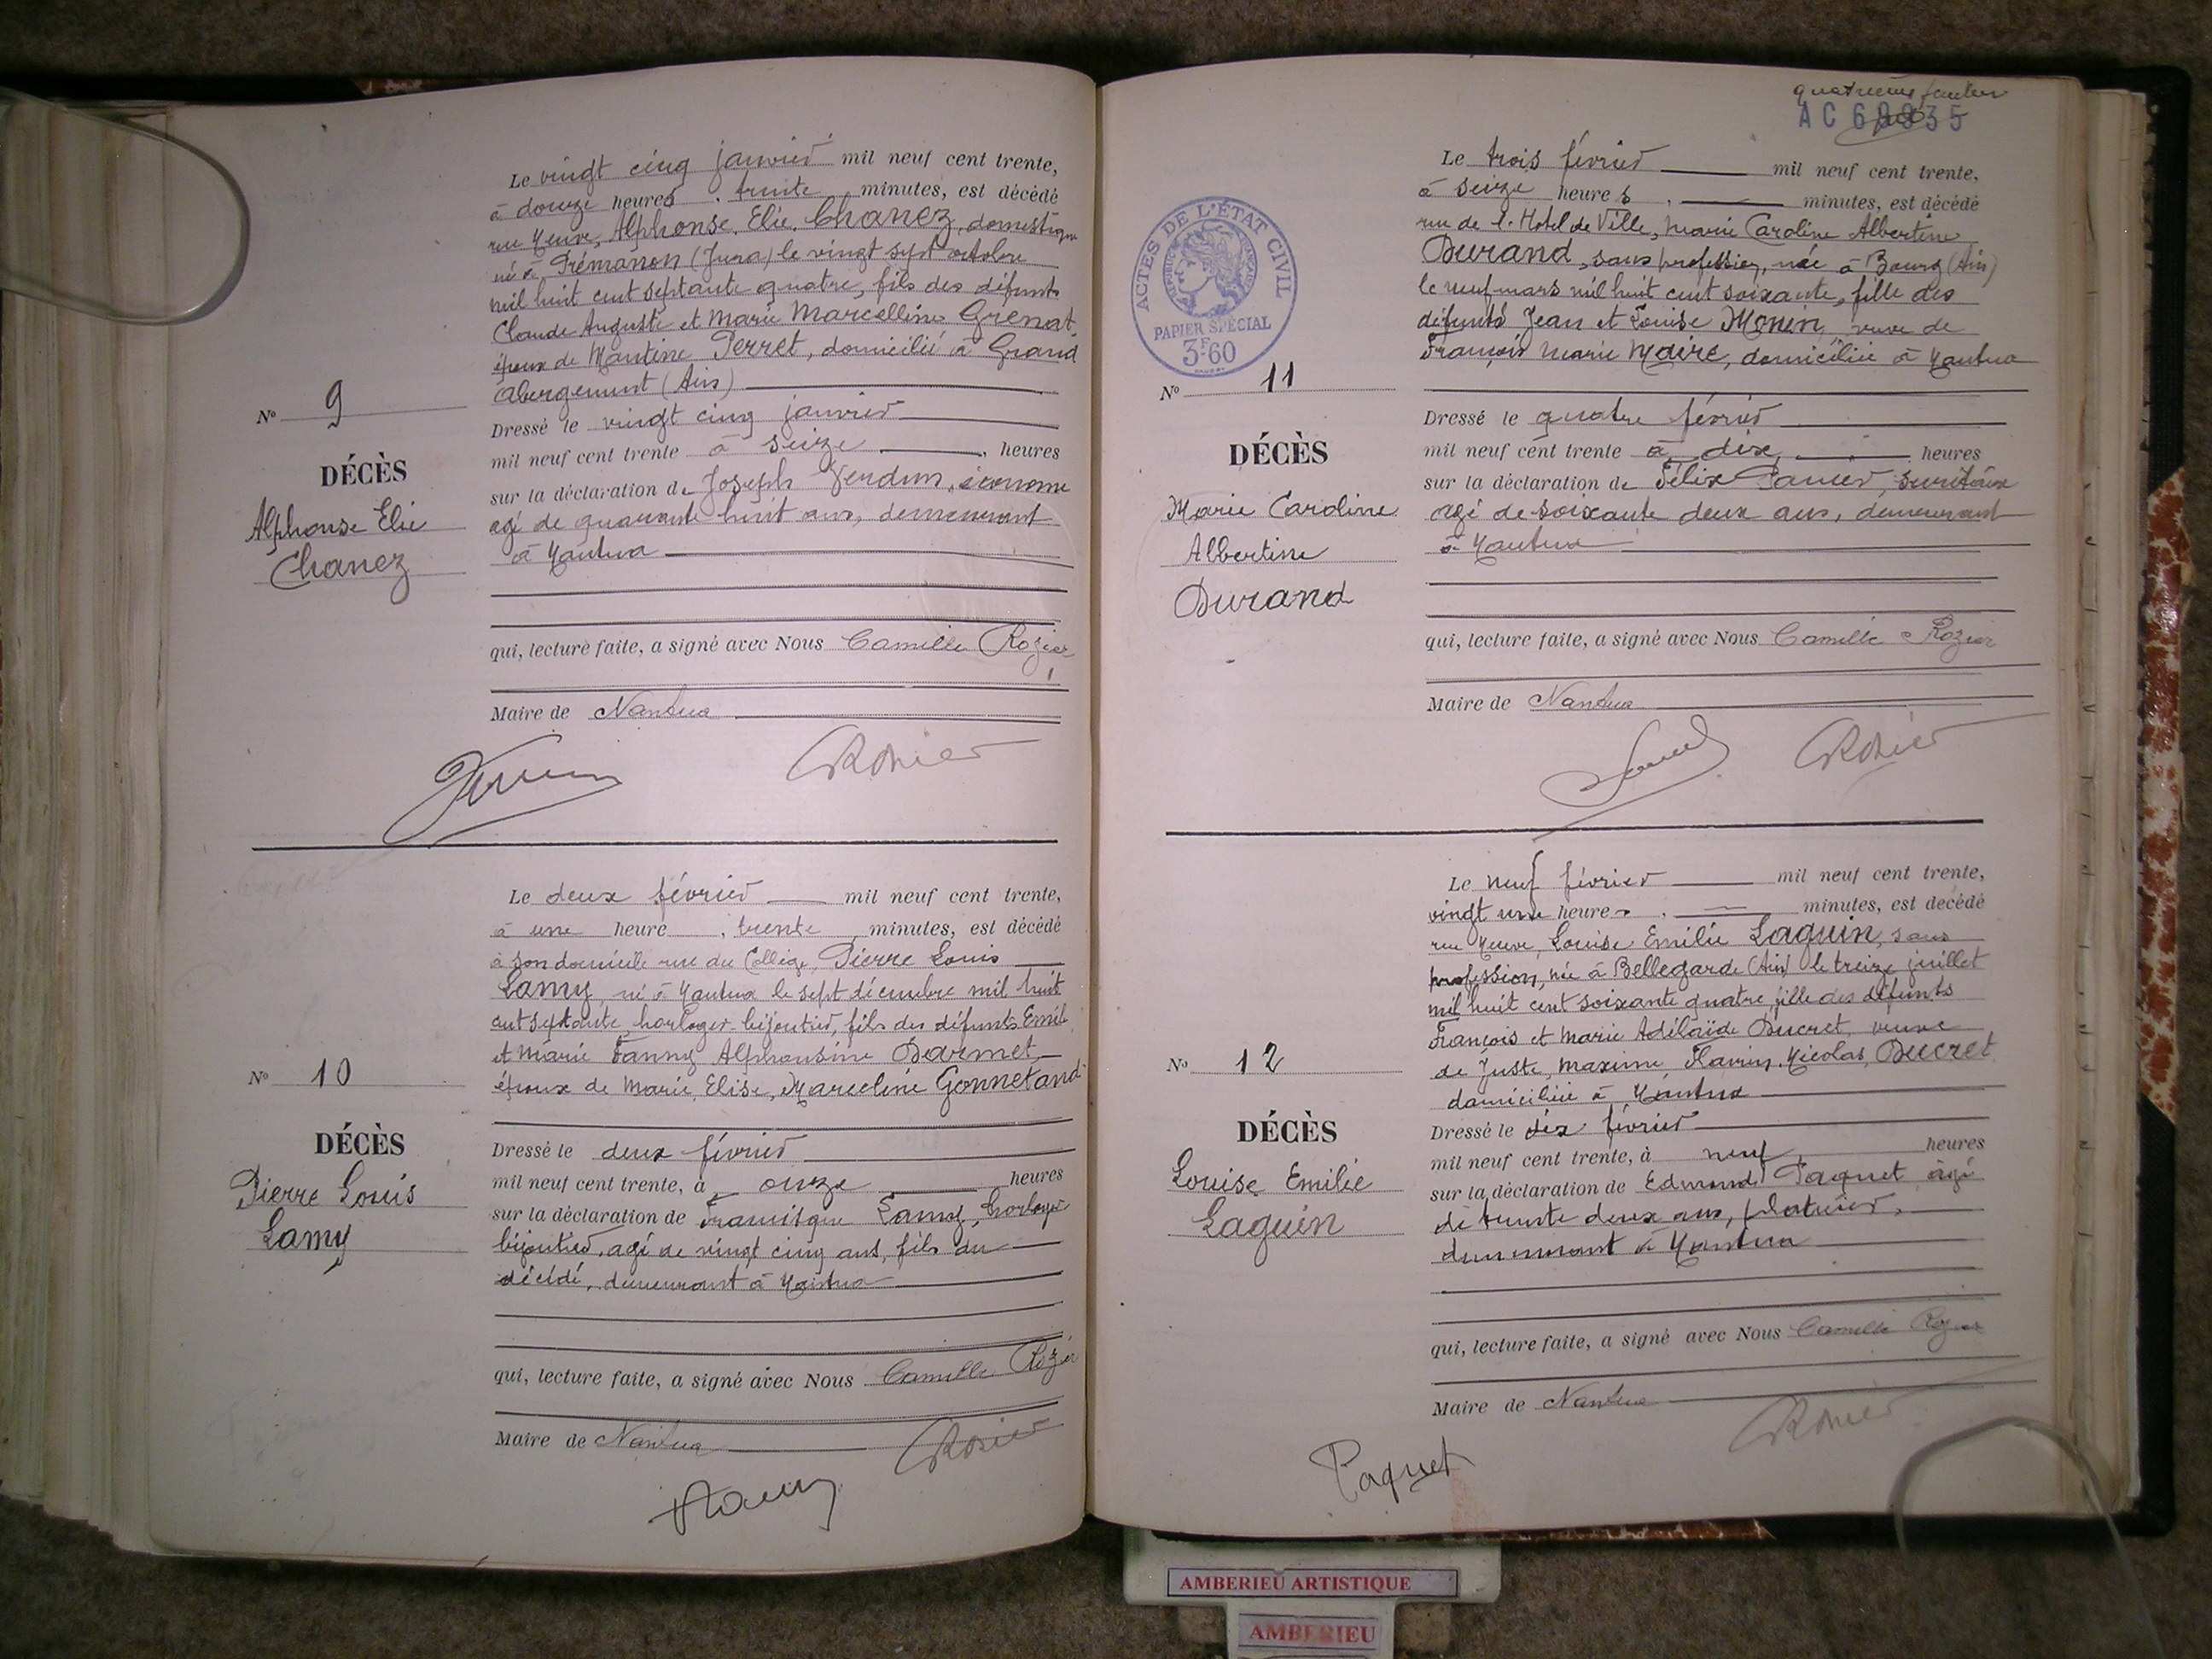 Le vingt cinq janvier mil neuf cent trente,
à douze heures, trente minutes, est décédé
rue Neuve, Alphonse, Elie, Chanez, domestique
né à Prémanon (Jura) le vingt sept octobre
mil huit cent septante quatre, fils des défunts
Claude Auguste et Marie Marcelline Grenat
époux de Mantine Perret, domicilié à Grand
Abergement (Ain)
N° 9
Dressé le vingt cinq janvier
mil neuf cent trente à seize, heures
DÉCÈS
sur la déclaration de Joseph Verdun, économe
Alphonse Elie
agé de quarante huit ans, demeurant
à Nantua
Chanez
qui, lecture faite, a signé avec Nous Camille Rozier
Maire de Nantua
Rozier
Le deux février mil neuf cent trente,
à une heure, trente minutes, est décédé
à son domicile rue du Collège, Pierre Louis
Lamy, né à Nantua le sept décembre mil huit
cent septante, horloger-bijoutier, fils des défunts Emile
et Marie Fanny Alphonsine Darmet
N° 10
époux de Marie, Elise, Marceline Gonnetand
DÉCÈS
Dressé le deux février
Pierre Louis
mil neuf cent trente, à onze heures
Lamy
sur la déclaration de Francisque Lamy, horloger
bijoutier, agé de vingt cinq ans, fils du
décédé, demeurant à Nantua
qui, lecture faite, a signé avec Nous Camille Rozier
Maire de Nantua
Rozier
Lamy
quatrième feuillet
AC 69935
Le trois février mil neuf cent trente,
à seize heures, minutes, est décédé
rue de l'Hotel de Ville, Marie Caroline Albertine
Durand, sans profession, née à Bourg (Ain)
le neuf mars mil huit cent soixante, fille des
défunts Jean et Louise Monin, veuve de
François Marie Maire, domiciliée à Nantua
ACTES DE L'ÉTAT CIVIL
RÉPUBLIQUE FRANÇAISE
PAPIER SPÉCIAL
3F60
N° 11
Dressé le quatre février
DÉCÈS
mil neuf cent trente à dix, heures
sur la déclaration de Félix secrétaire
Marie Caroline
agé de soixante deux ans, demeurant
Albertine
à Nantua
Durand
qui, lecture faite, a signé avec Nous Camille Rozier
Maire de Nantua
Rozier
Le neuf février mil neuf cent trente,
vingt une heures, minutes, est décédé
rue Neuve, Louise Emilie Laguin, sans
profession, née à Bellegarde (Ain) le treize juillet
mil huit cent soixante quatre, fille des défunts
François et Marie Adélaïde Ducret, veuve
de Juste, Maxime, Flavin, Nicolas, Ducret
domiciliée à Nantua
N° 12
DÉCÈS
Dressé le dix février
mil neuf cent trente, à neuf, heures
Louise Emilie
sur la déclaration de Edmond Paquet agé
Laguin
de trente deux ans, platrier,
demeurant à Nantua
qui, lecture faite, a signé avec Nous Camille Rozier
Maire de Nantua
Rozier
Paquet
AMBERIEU ARTISTIQUE
AMBERIEU